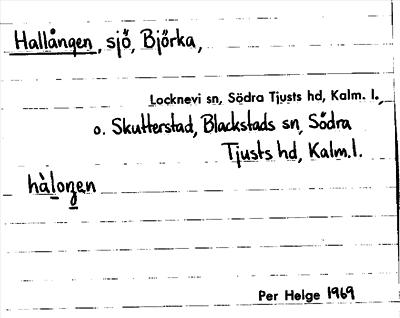 Hallången, sjö, Björka,
Locknevi sn, Södra Tjusts hd, Kalm. l.,
o. Skutterstad, Blackstads sn, Södra
Tjusts hd, Kalm. l.
hàloŋen
Per Helge 1969